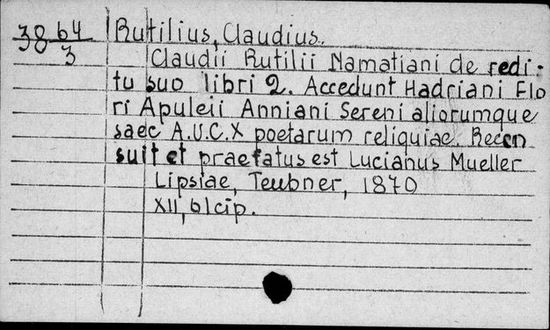 3864
3
Rutilius, Claudius.
Claudii Rutilii Namatiani de redi-
tu suo libri 2. Accedunt Hadriani Flo
ri Apuleii Anniani Sereni aliorumque
saec A.U.C.X poetarum reliquiae. Recen
suit et praefatus est Lucianus Mueller
Lipsiae, Teubner, 1870
XII, 61cip.